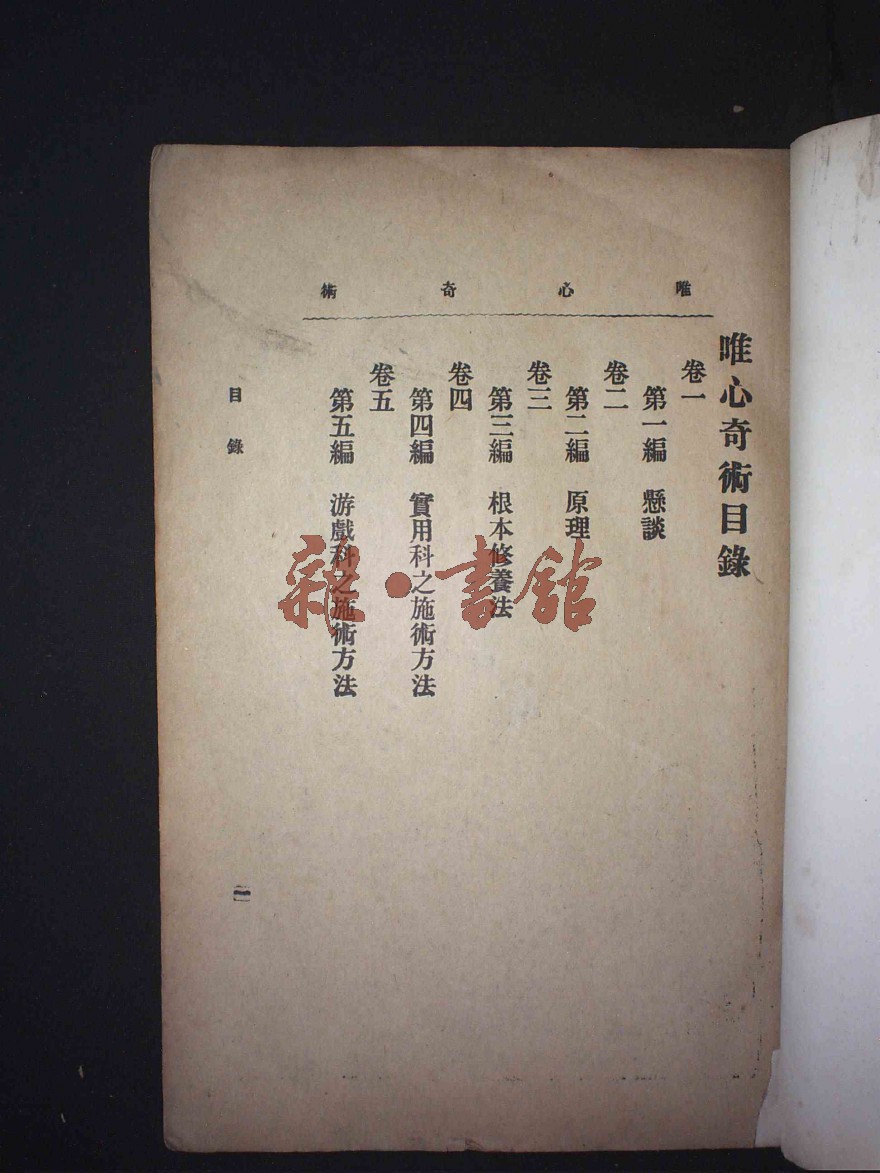 唯心奇術
唯心奇術目錄
卷一
第一編　懸談
卷二
第二編　原理
卷三
第三編　根本修養法
卷四
第四編　實用科之施術方法
卷五
第五編　游戲科之施術方法
目錄
一
雜·書館